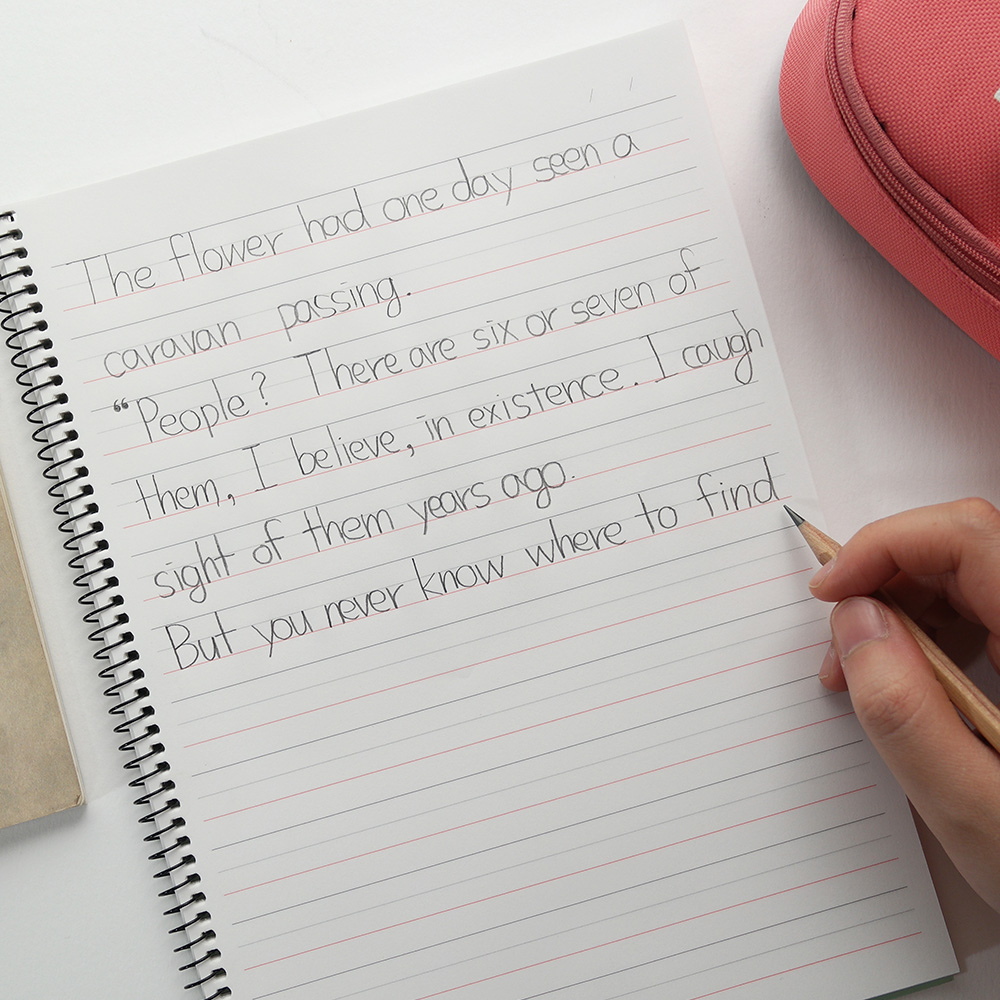 The flower had one day seen a
caravan passing.
“People? There are six or seven of
them, I believe, in existence. I caugh
sight of them years ago.
But you never know where to find